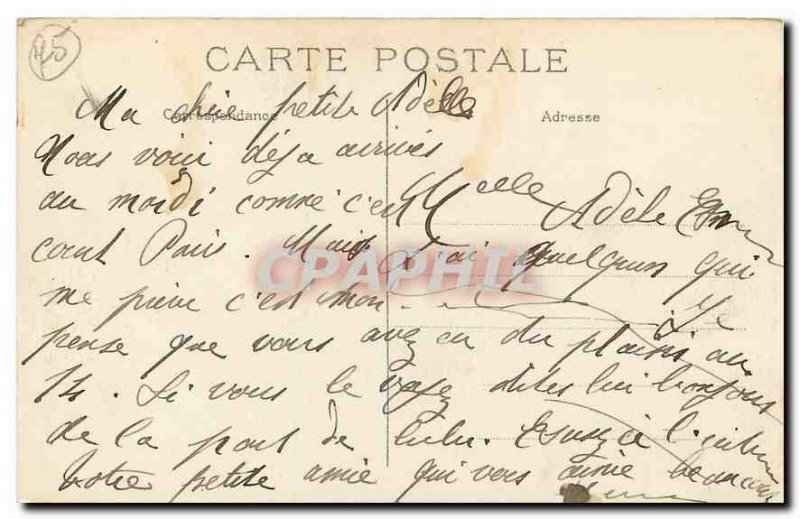 45
CARTE POSTALE
Ma chère petite Adèle
Correspondance
Adresse
Nous voici déja arrivés
au mardi comme c'est
Melle Adèle
court Paris. Mais j'ai quelqun qui
me c'est mon
Je
pense que vous avez eu du plaisir au
14. Si vous le voyez dites lui bonjour
de la part de Lulu. Excusez l'
Votre petite amie qui vous aime beaucoup
CPAPHIL